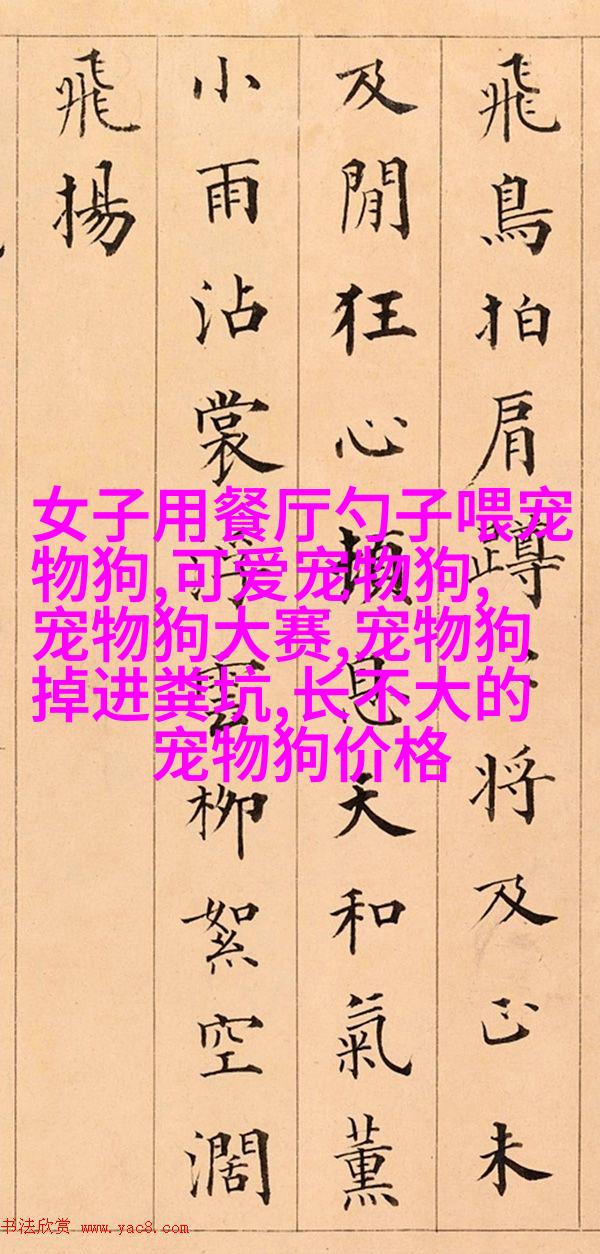 飛鳥拍肩蹲將及正未
及閒狂心頓息天和氣薰
小雨沾裳雲柳絮空濶
飛揚
女子用餐厅勺子喂宠
物狗,可爱宠物狗,
宠物狗大赛,宠物狗
掉进粪坑,长不大的
宠物狗价格
书法欣赏 www.yac8.com